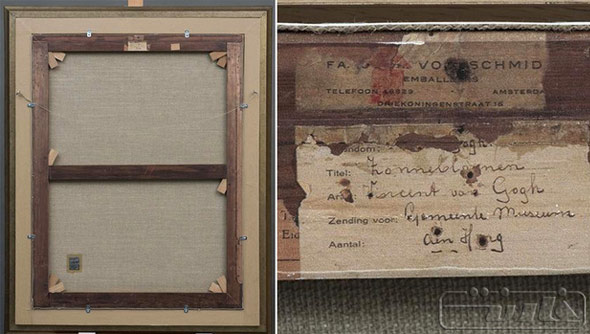 FA. VO SCHMID
EMBALLEURS
TELEFOON AMSTERDA
DRIEKONINGENSTRAAT 16
endom: Gogh
Titel: Zonnebloemen
Art Vincent van Gogh
Zending voor: Gemeente Museum
Aantal: den Haag